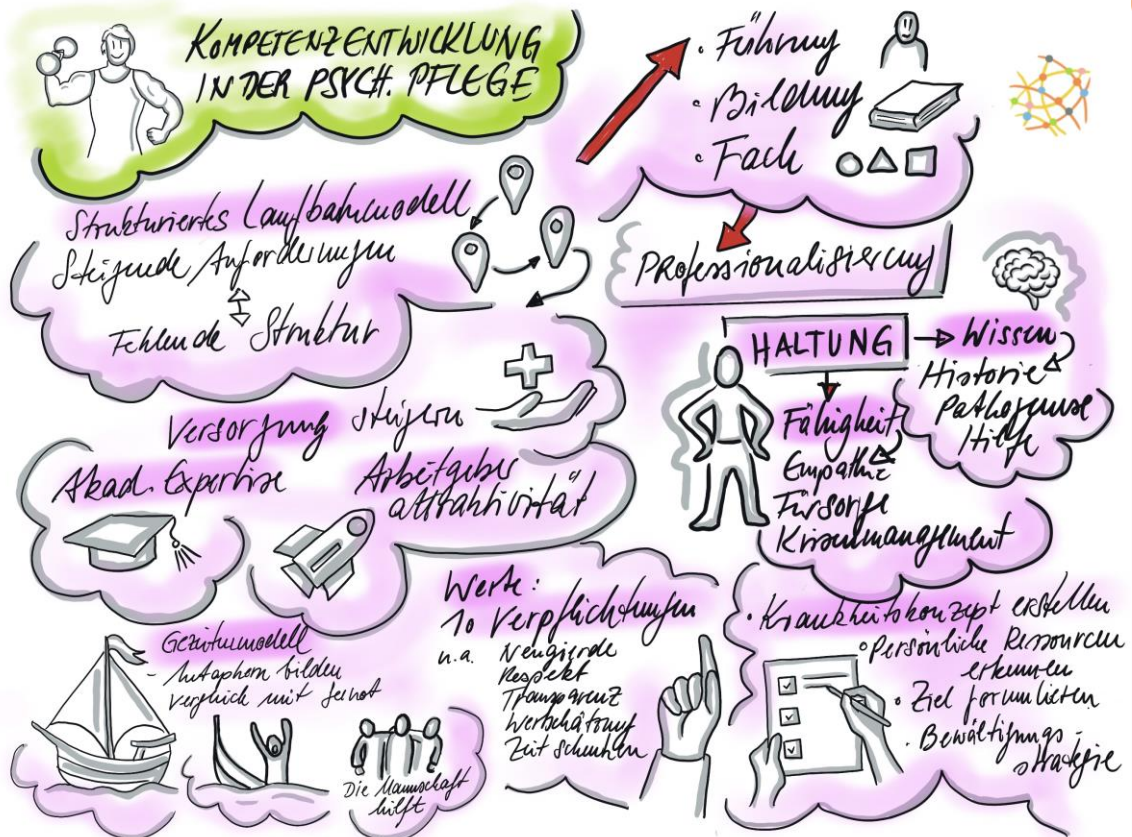 KOMPETENZENTWICKLUNG
IN DER PSYCH. PFLEGE
• Führung
• Bildung
• Fach
Strukturiertes Laufbahnmodell
Steigende Anforderungen
Fehlende Struktur
Professionalisierung
HALTUNG
Wissen
Historie
Pathogenese
Hilfe
Fähigkeit
Empathie
Fürsorge
Krisenmanagement
Versorgung steigern
Akad. Expertise
Arbeitgeber
attraktivität
Gezeitenmodell
- Metaphern bilden
Vergleich mit Seenot
Die Mannschaft
hilft
Werte:
10 Verpflichtungen
u.a. Neugierde
Respekt
Transparenz
Wertschätzung
Zeit schenken
• Krankheitskonzept erstellen
• Persönliche Ressourcen
erkennen
• Ziel formulieren
• Bewältigungs-
strategie